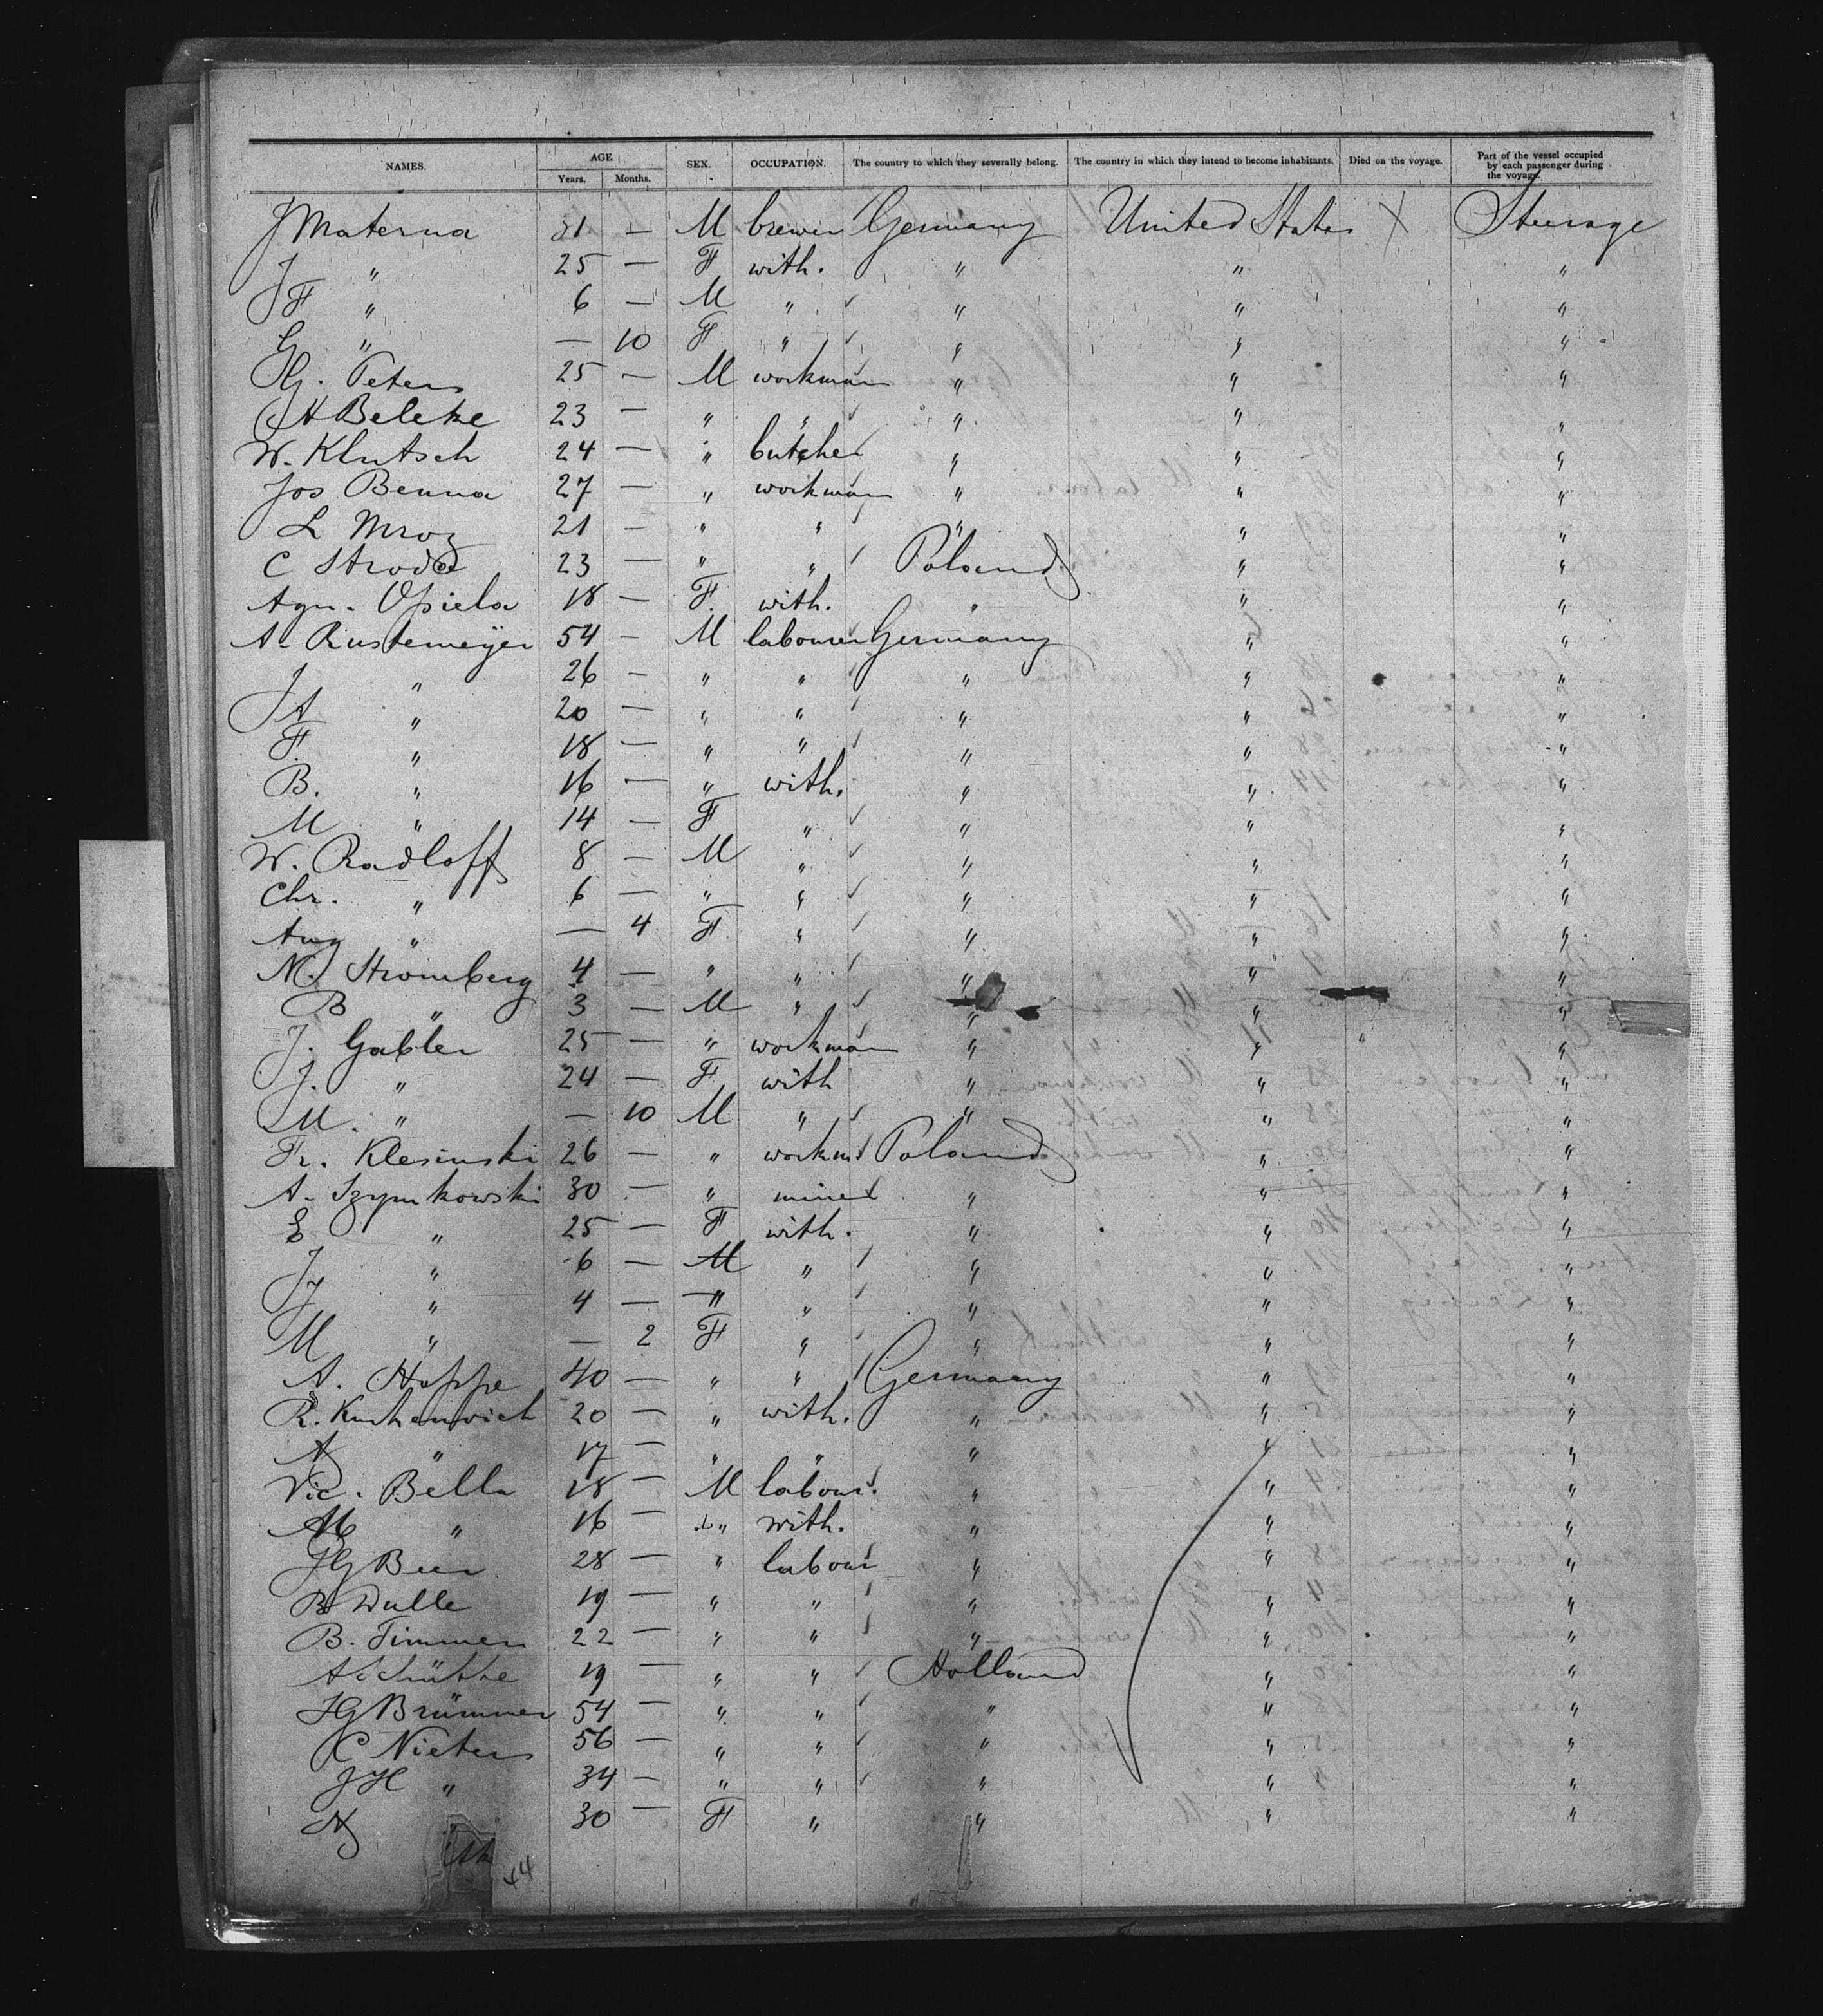 NAMES. AGE Years. Months. SEX. OCCUPATION. The country to which they severally belong. The country in which they intend to become inhabitants. Died on the voyage. Part of the vessel occupied by each passenger during the voyage.
J Materna 31 — M brewer Germany United States X Steerage
J " 25 — F with. " " "
F " 6 — M " " " "
G " — 10 F " " " "
Hy. Peters 25 — M workman " " "
A Beleke 23 — " " " " "
W. Klutsch 24 — " butcher " " "
Jos Benna 27 — " workman " " "
L Mroz 21 — " " " " "
C Stroda 23 — " " Poland " "
Agn. Opiela 18 — F. with. " " "
A. Rustemeyer 54 — M labourer Germany " "
J " 26 — " " " " "
A " 20 — " " " " "
F. " 18 — " " " " "
B. " 16 — " with. " " "
M " 14 — F " " " "
W. Radloff 8 — M " " " "
Chr. " 6 — " " " " "
Aug " — 4 F " " " "
M. Stromberg 4 — " " " " "
B " 3 — M " " " "
J. Gabler 25 — " workman " " "
J. " 24 — F with " " "
M. " — 10 M " " " "
Fr. Klesinski 26 — " workm Poland " "
A. Szymkowski 30 — " miner " " "
E " 25 — F with. " " "
J " 6 — M " " " "
J " 4 — " " " " "
M " — 2 F " " " "
A. Hoppe 40 — " " Germany " "
R. Kuchenwich 20 — " with. " " "
A " 17 — " " " " "
Vic. Bella 18 — M labour. " " "
M " 16 — " with. " " "
HG Beer 28 — " labour " " "
B Wulle 19 — " " " " "
B. Timmer 22 — " " " " "
A Schütte 19 — " " Holland " "
HG Brümmer 54 — " " " " "
C Nieters 56 — " " " " "
JH " 34 — " " " " "
A 30 — F " " " "
44